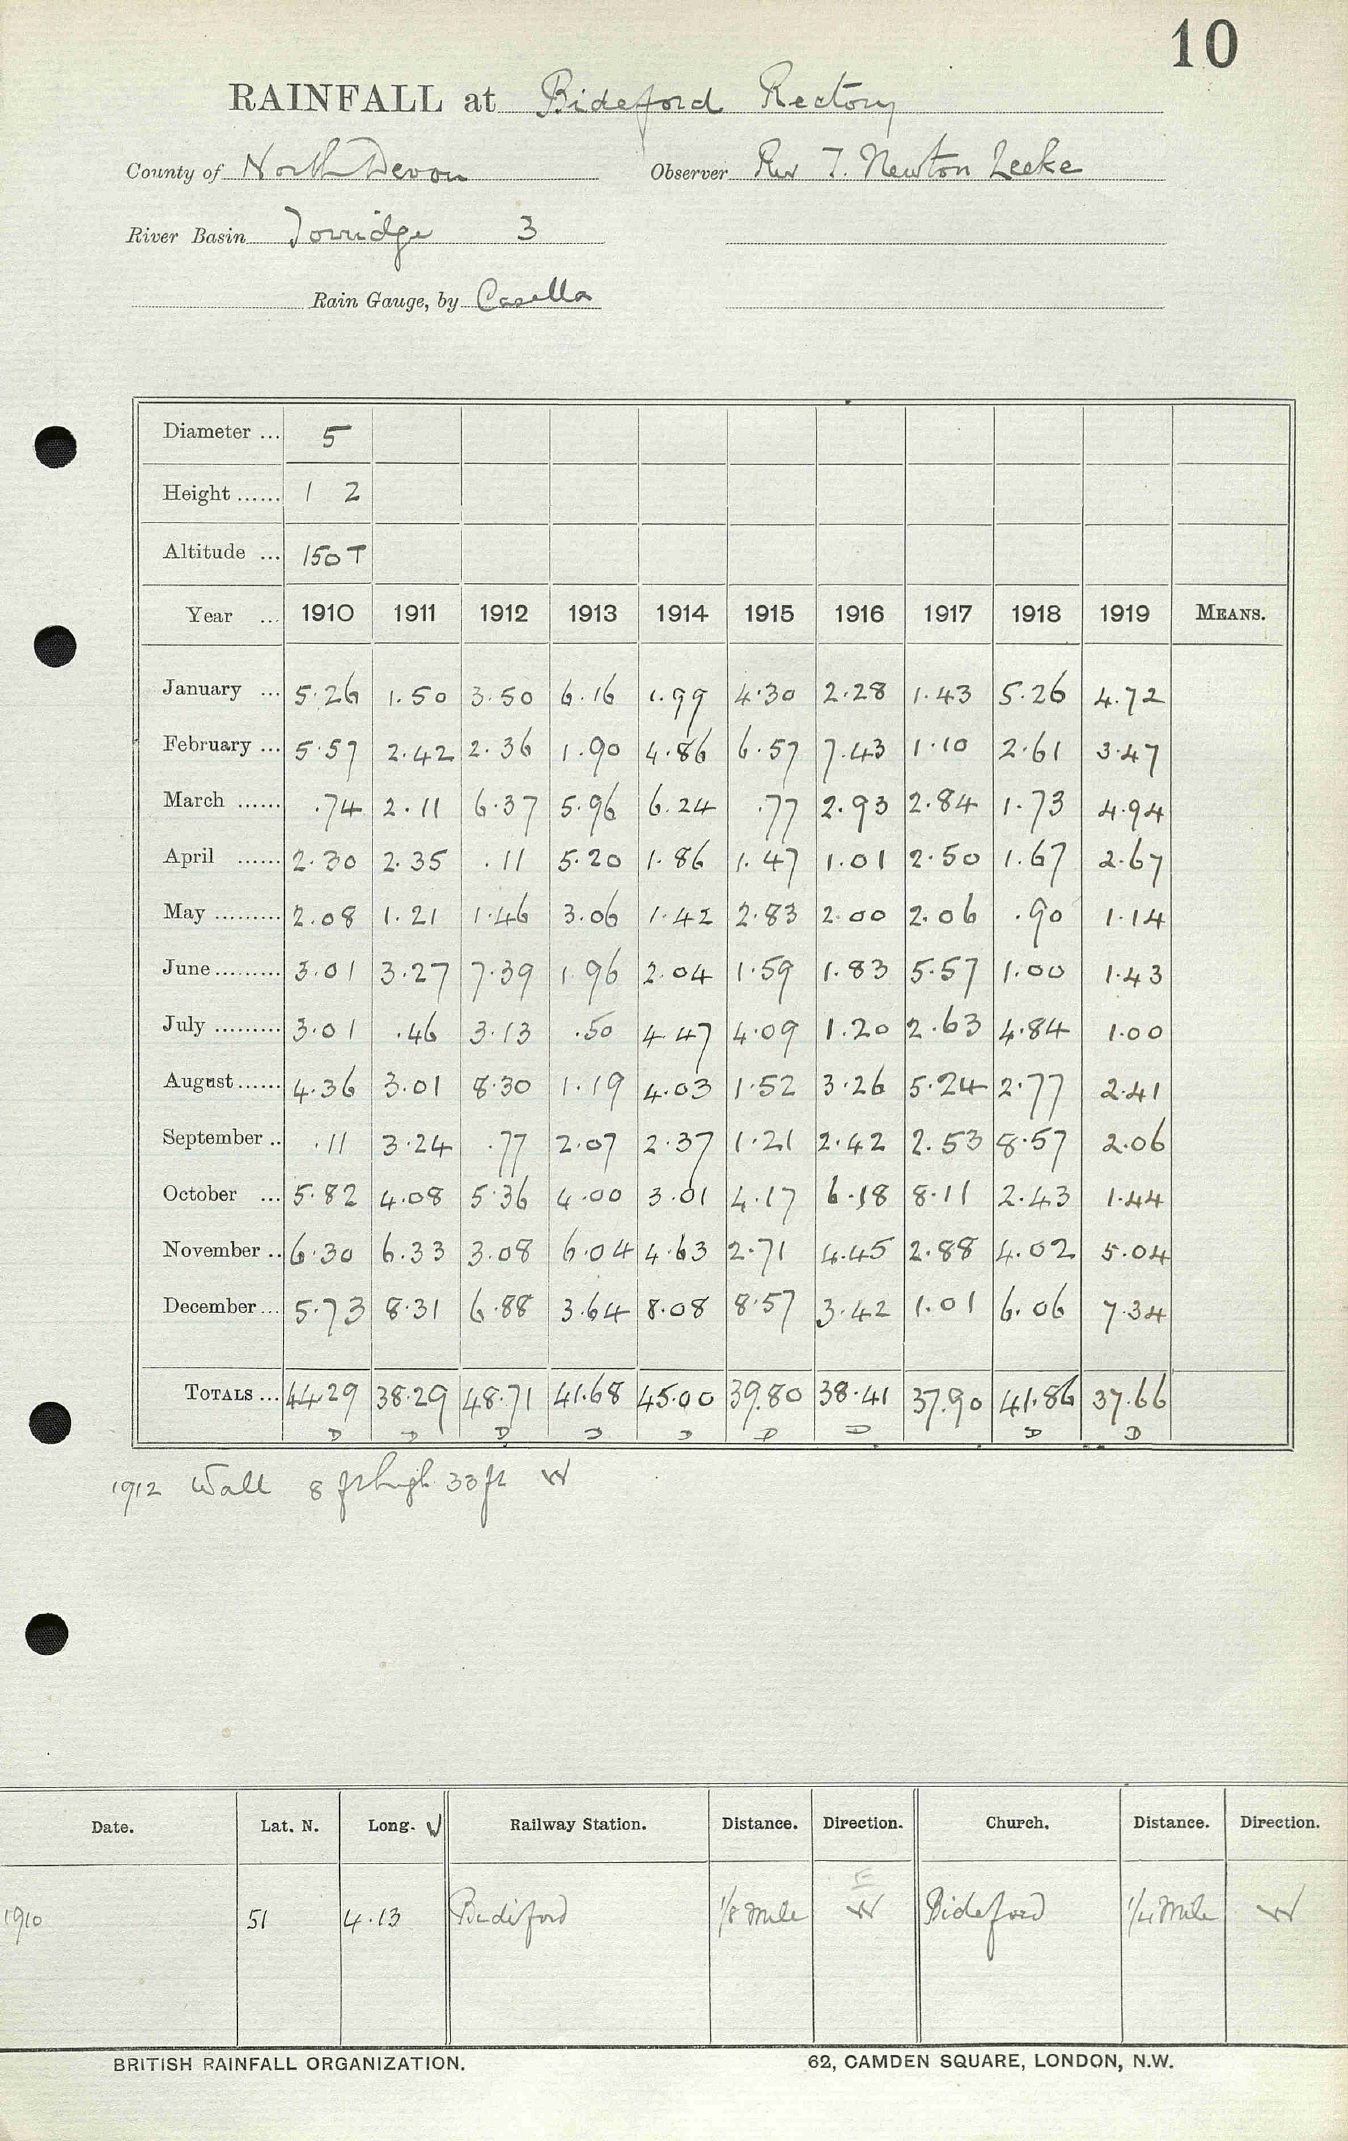 10
RAINFALL at Bideford Rectory
County of North Devon Observer Rev T. Newton Leeke
River Basin Torridge 3
Rain Gauge, by Casella
Diameter ... 5
Height ...... 1 2
Altitude ... 150 T
Year ... 1910 1911 1912 1913 1914 1915 1916 1917 1918 1919 MEANS.
January ... 5.26 1.50 3.50 6.16 1.99 4.30 2.28 1.43 5.26 4.72
February ... 5.57 2.42 2.36 1.90 4.86 6.57 7.43 1.10 2.61 3.47
March ...... .74 2.11 6.37 5.96 6.24 .77 2.93 2.84 1.73 4.94
April ...... 2.30 2.35 .11 5.20 1.86 1.47 1.01 2.50 1.67 2.67
May ......... 2.08 1.21 1.46 3.06 1.42 2.83 2.00 2.06 .90 1.14
June ......... 3.01 3.27 7.39 1.96 2.04 1.59 1.83 5.57 1.00 1.43
July ......... 3.01 .46 3.13 .50 4.47 4.09 1.20 2.63 4.84 1.00
August ...... 4.36 3.01 8.30 1.19 4.03 1.52 3.26 5.24 2.77 2.41
September .. .11 3.24 .77 2.07 2.37 1.21 2.42 2.53 8.57 2.06
October ... 5.82 4.08 5.36 4.00 3.01 4.17 6.18 8.11 2.43 1.44
November .. 6.30 6.33 3.08 6.04 4.63 2.71 4.45 2.88 4.02 5.04
December ... 5.73 8.31 6.88 3.64 8.08 8.57 3.42 1.01 6.06 7.34
TOTALS ... 44.29 38.29 48.71 41.68 45.00 39.80 38.41 37.90 41.86 37.66
D D D D D D D D D
1912 Wall 8 ft high 33 ft W
Date. Lat. N. Long. W Railway Station. Distance. Direction. Church. Distance. Direction.
E
1910 51 4.13 Bideford 1/8 mile W Bideford 1/4 mile W
BRITISH RAINFALL ORGANIZATION. 62, CAMDEN SQUARE, LONDON, N.W.